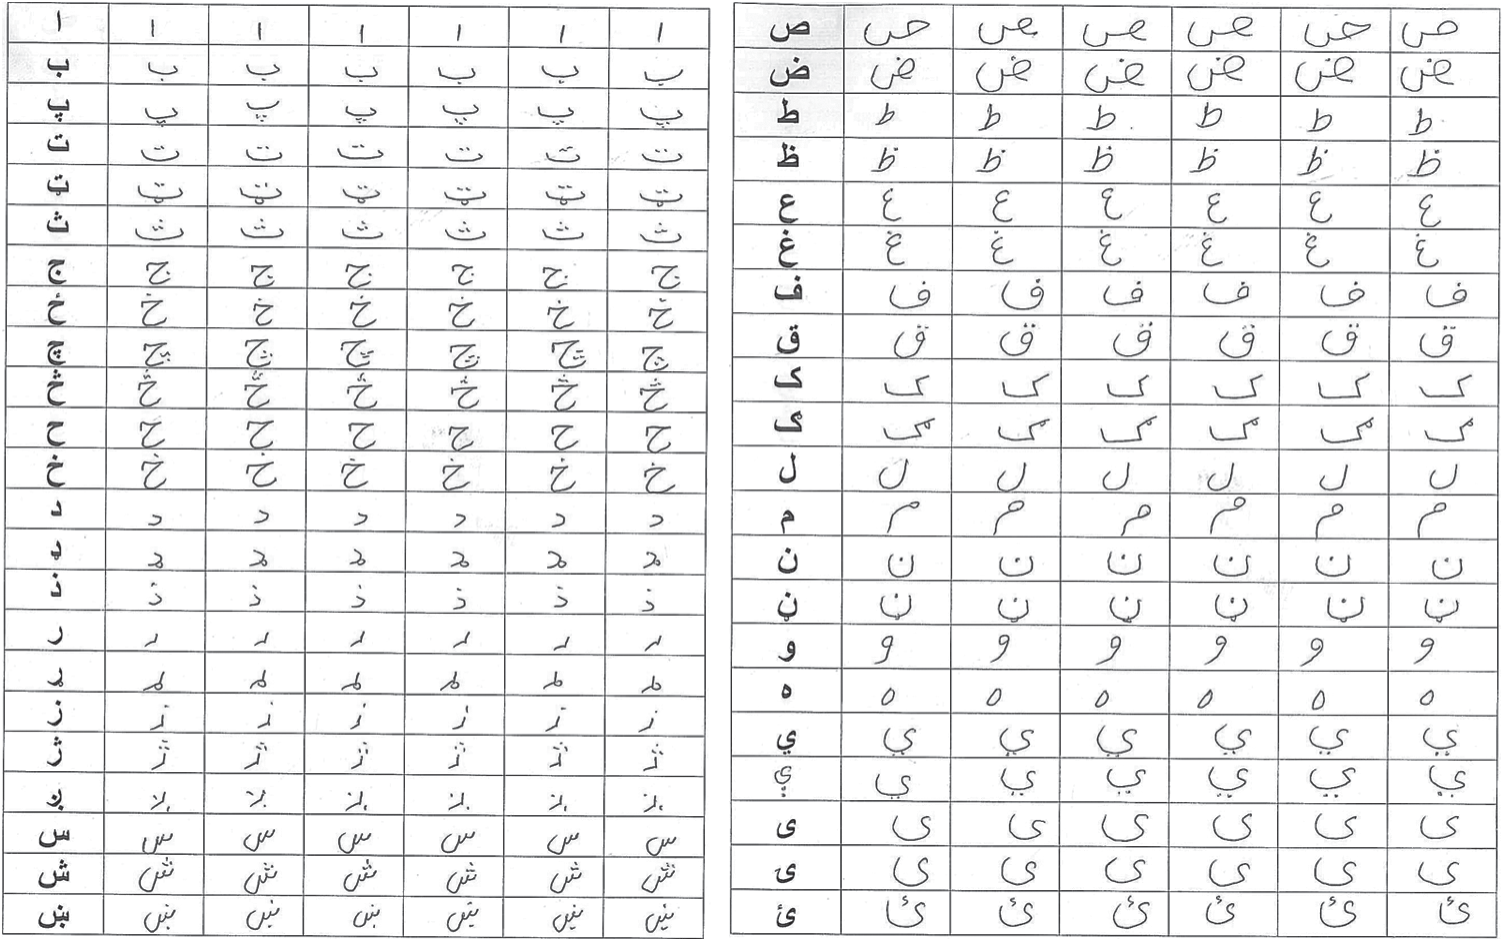 ا ا ا ا ا ا ا
ب ب ب ب ب ب ب
پ پ پ پ پ پ پ
ت ت ت ت ت ت ت
ټ ټ ټ ټ ټ ټ ټ
ث ث ث ث ث ث ث
ج ج ج ج ج ج ج
ځ ځ ځ ځ ځ ځ ځ
چ چ چ چ چ چ چ
څ څ څ څ څ څ څ
ح ح ح ح ح ح ح
خ خ خ خ خ خ خ
د د د د د د د
ډ ډ ډ ډ ډ ډ ډ
ذ ذ ذ ذ ذ ذ ذ
ر ر ر ر ر ر ر
ړ ړ ړ ړ ړ ړ ړ
ز ز ز ز ز ز ز
ژ ژ ژ ژ ژ ژ ژ
ږ ږ ږ ږ ږ ږ ږ
س س س س س س س
ش ش ش ش ش ش ش
ښ ښ ښ ښ ښ ښ ښ
ص ص ص ص ص ص ص
ض ض ض ض ض ض ض
ط ط ط ط ط ط ط
ظ ظ ظ ظ ظ ظ ظ
ع ع ع ع ع ع ع
غ غ غ غ غ غ غ
ف ف ف ف ف ف ف
ق ق ق ق ق ق ق
ک ک ک ک ک ک ک
ګ ګ ګ ګ ګ ګ ګ
ل ل ل ل ل ل ل
م م م م م م م
ن ن ن ن ن ن ن
ڼ ڼ ڼ ڼ ڼ ڼ ڼ
و و و و و و و
ه ه ه ه ه ه ه
ي ي ي ي ي ي ي
ې ې ې ې ې ې ې
ی ی ی ی ی ی ی
ۍ ۍ ۍ ۍ ۍ ۍ ۍ
ئ ئ ئ ئ ئ ئ ئ